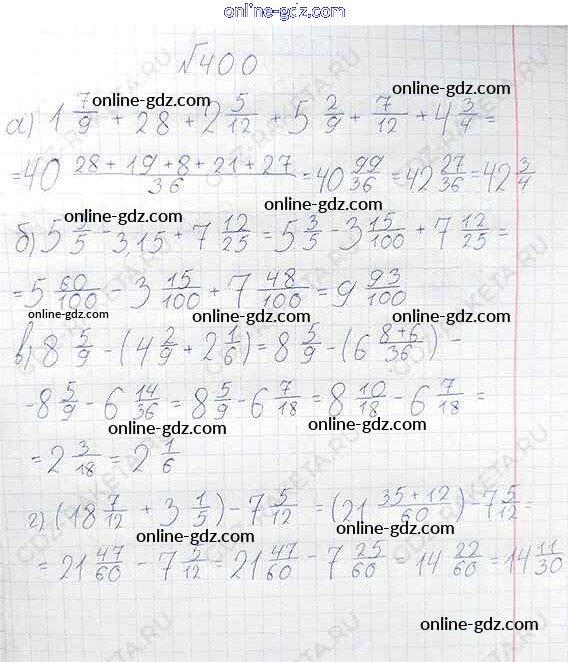 online-gdz.com
№400
online-gdz.com online-gdz.com
а) 1 7/9 + 28 + 2 5/12 + 5 2/9 + 7/12 + 4 3/4 =
= 40 (28 + 19 + 8 + 21 + 27)/36 = 40 99/36 = 42 27/36 = 42 3/4
online-gdz.com online-gdz.com
б) 5 3/5 - 3,15 + 7 12/25 = 5 3/5 - 3 15/100 + 7 12/25 =
= 5 60/100 - 3 15/100 + 7 48/100 = 9 93/100
online-gdz.com online-gdz.com
в) 8 5/9 - (4 2/9 + 2 1/6) = 8 5/9 - (6 (8+6)/36) -
online-gdz.com
- 8 5/9 - 6 14/36 = 8 5/9 - 6 7/18 = 8 10/18 - 6 7/18 =
online-gdz.com
= 2 3/18 = 2 1/6
online-gdz.com online-gdz.com
г) (18 7/12 + 3 1/5) - 7 5/12 = (21 (35 + 12)/60) - 7 5/12 =
= 21 47/60 - 7 5/12 = 21 47/60 - 7 25/60 = 14 22/60 = 14 11/30
online-gdz.com online-gdz.com
online-gdz.com
GDZ-RAKETA.RU